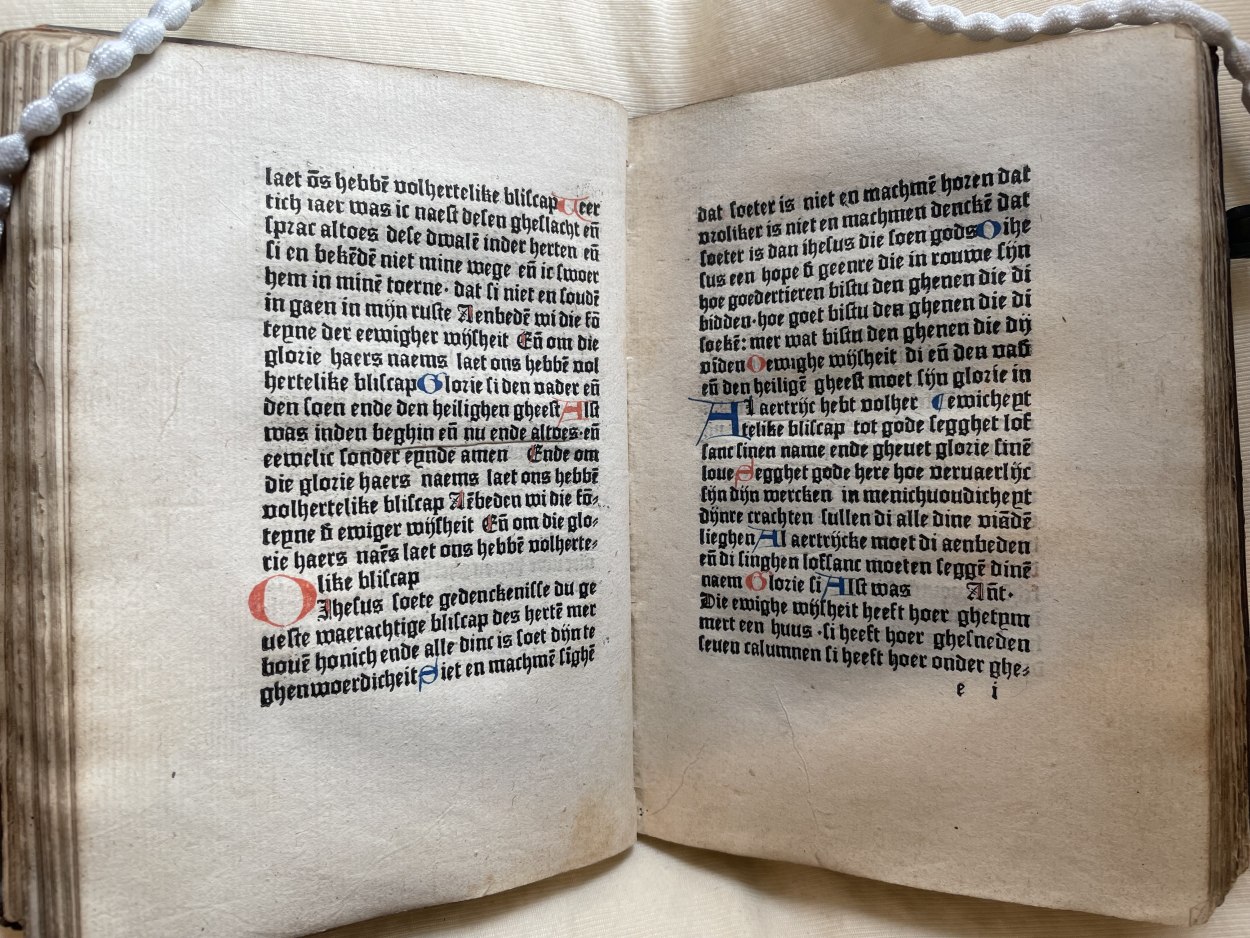 laet ōs hebbē volhertelike bliscap Veer
tich iaer was ic naest desen gheslacht eñ
sprac altoes dese dwalē inder herten eñ
si en bekēdē niet mine wege eñ ic swoer
hem in minē toerne· dat si niet en soudē
in gaen in mijn ruste Aenbedē wi die fō
teyne der eewigher wijsheit Eñ om die
glorie haers naems laet ons hebbē vol
hertelike bliscap Glorie si den vader eñ
den soen ende den heilighen gheest Alst
was inden beghin eñ nu ende altoes·eñ
eewelic sonder eynde amen Ende om
die glorie haers naems laet ons hebbē
volhertelike bliscap Aēbeden wi die fō-
teyne đ ewiger wijsheit Eñ om die glo-
rie haers naēs laet ons hebbē volherte-
like bliscap
O Jhesus soete gedenckenisse du ge
ueste waerachtige bliscap des hertē mer
bouē honich ende alle dinc is soet dijn te
ghenwoerdicheit Niet en machmē sīghē
dat soeter is niet en machmē horen dat
vroliker is niet en machmen denckē dat
soeter is dan ihesus die soen gods O ihe
sus een hope đ geenre die in rouwe sijn
hoe goedertieren bistu den ghenen die di
bidden·hoe goet bistu den ghenen die di
soekē: mer wat bistu den ghenen die dij
vīden O ewighe wijsheit di eñ den vađ
eñ den heiligē gheest moet sijn glorie in
Al aertrijc hebt volher ewicheyt
telike bliscap tot gode segghet lof
sanc sinen name ende gheuet glorie sinē
loue Segghet gode here hoe veruaerlijc
sijn dijn wercken in menichuoudicheyt
dijnre crachten sullen di alle dine viādē
lieghen Al aertrijcke moet di aenbeden
eñ di singhen lofsanc moeten seggē dinē
naem Glorie si Alst was Añt·
Die ewighe wijsheit heeft hoer ghetym
mert een huus ·si heeft hoer ghesneden
seuen calumnen si heeft hoer onder ghe-
e i